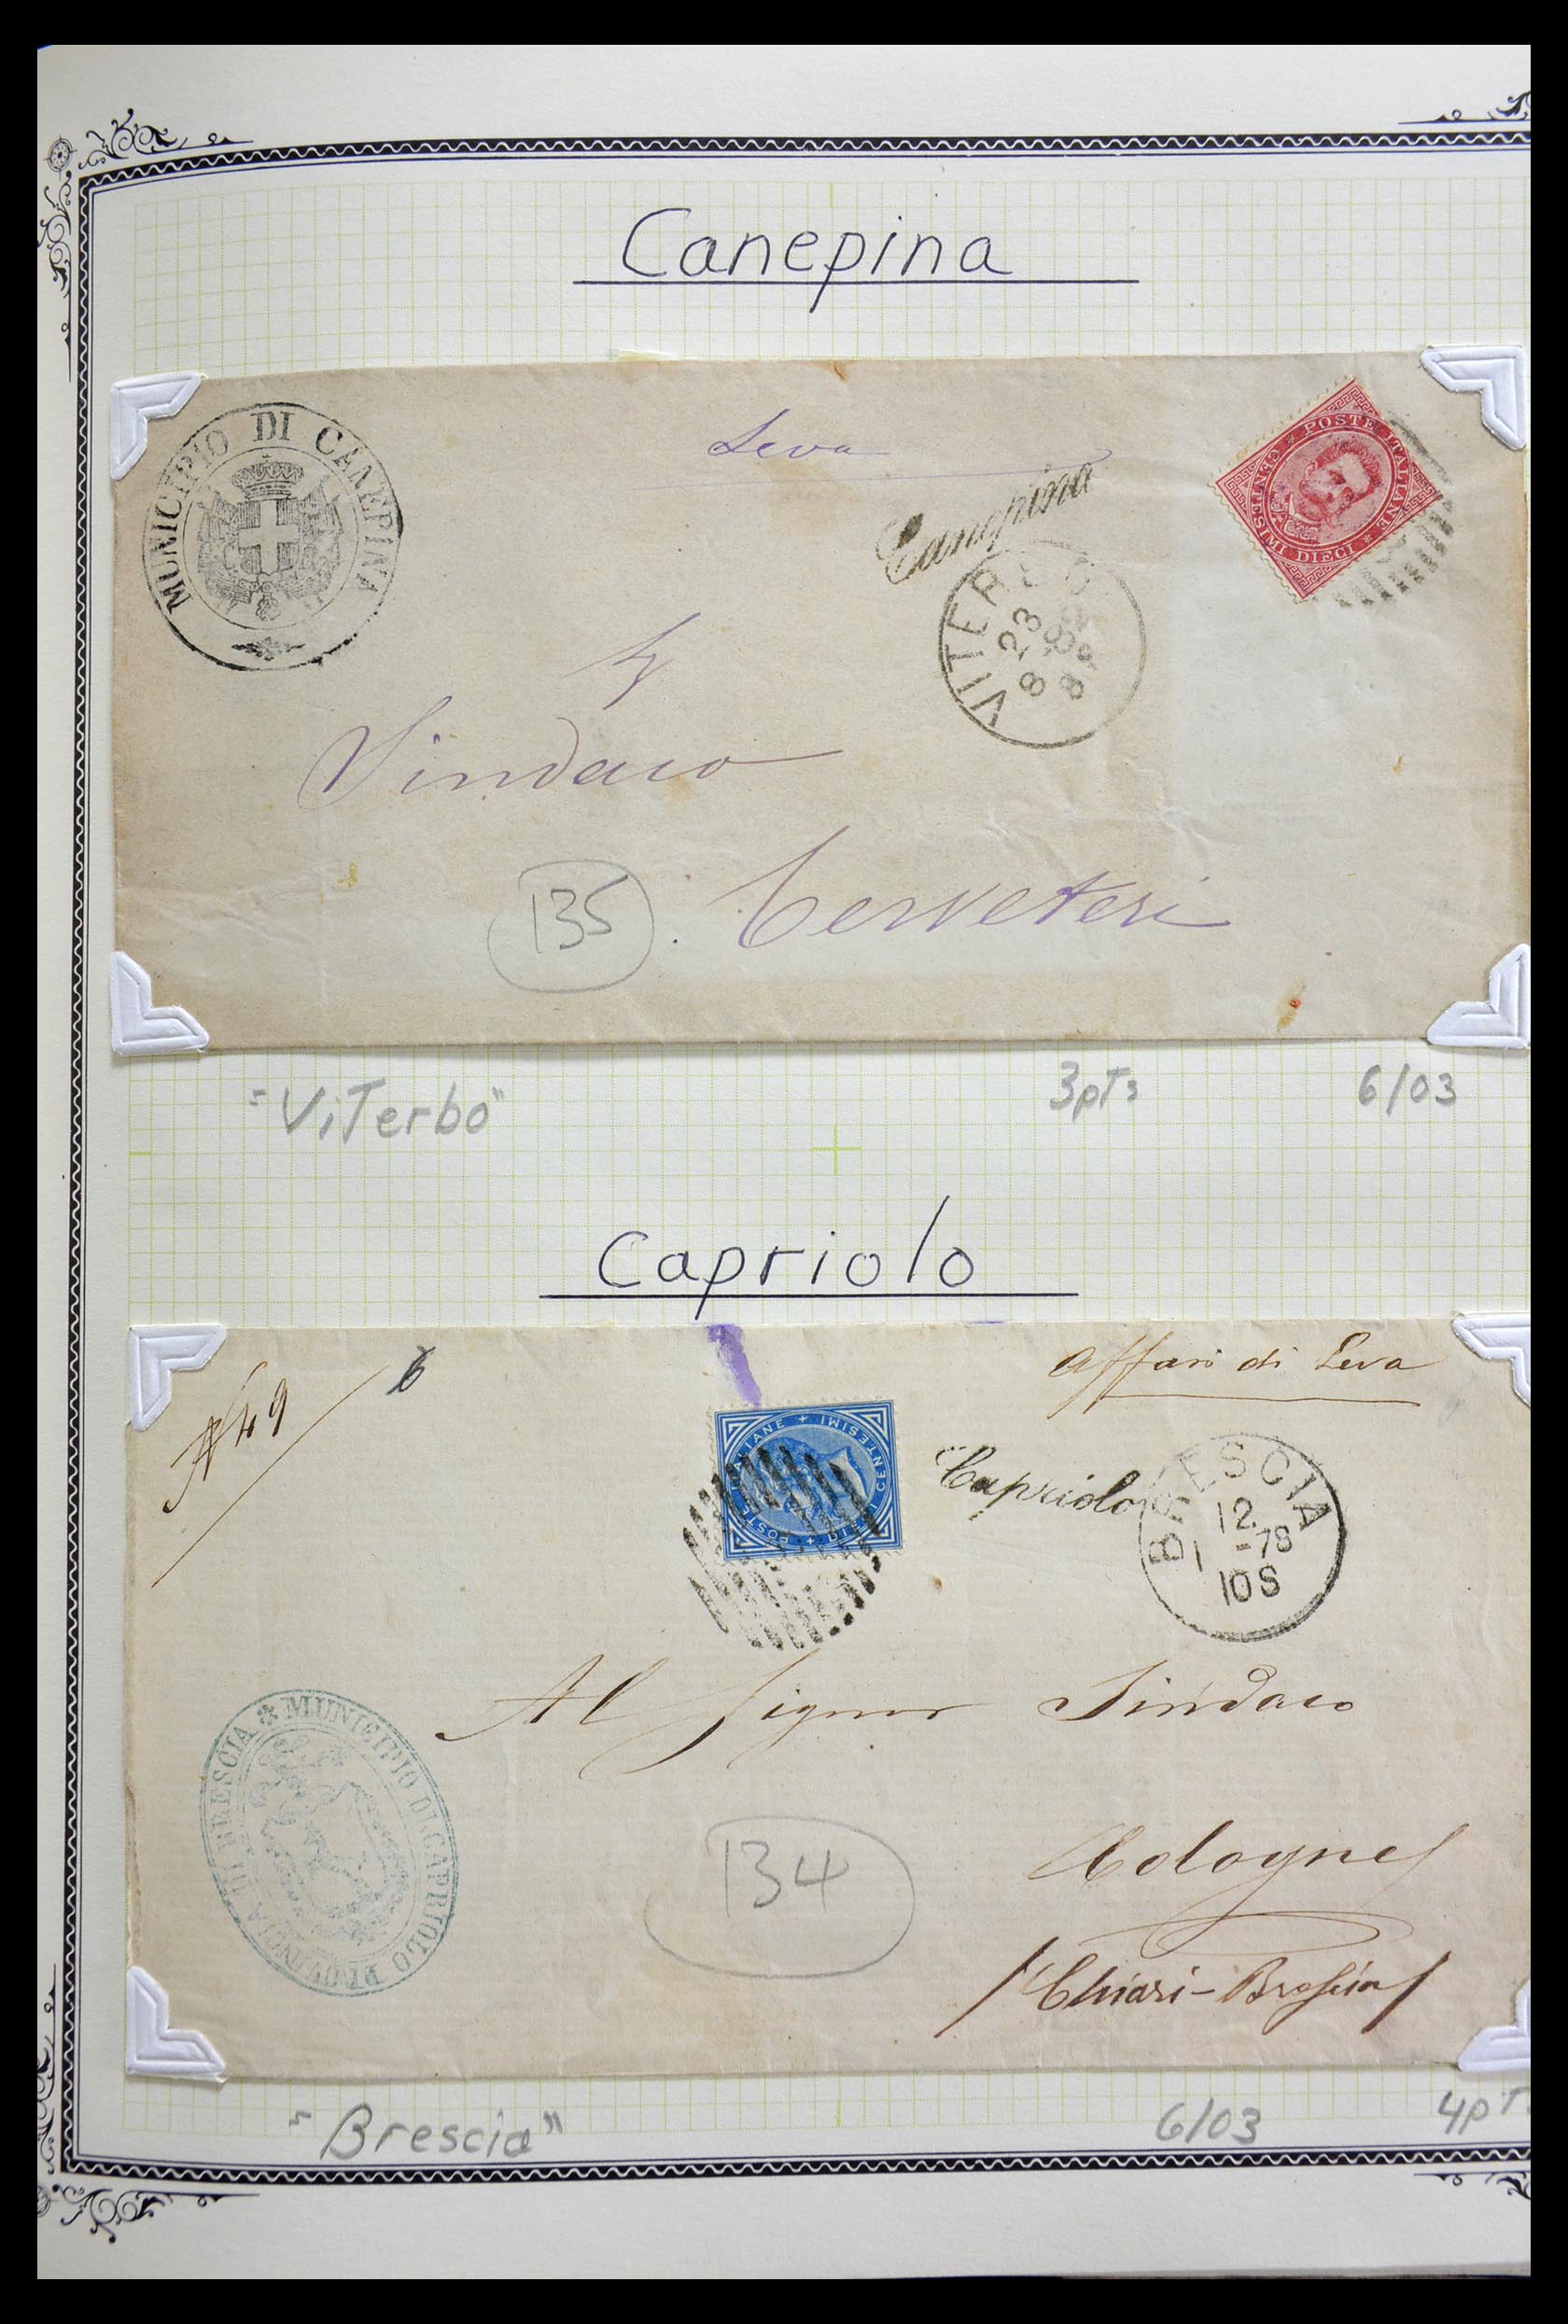 Canepina
MUNICIPIO DI CANEPINA
Leva
Canepina
POSTE ITALIANE * CENTESIMI DIECI *
VITER
23
8
Sindaco
135
Cerveteri
"ViTerbo"
3pTs
6/03
Capriolo
N 49
6
Affari di Leva
POSTE ITALIANE + CENTESIMI DIECI +
Capriolo
BRESCIA
12
1 -78
10S
Al Signor Sindaco
MUNICIPIO DI CAPRIOLO PROVINCIA DI BRESCIA
134
Cologne
/Chiari-Brescia/
"Brescia"
6/03
4pT